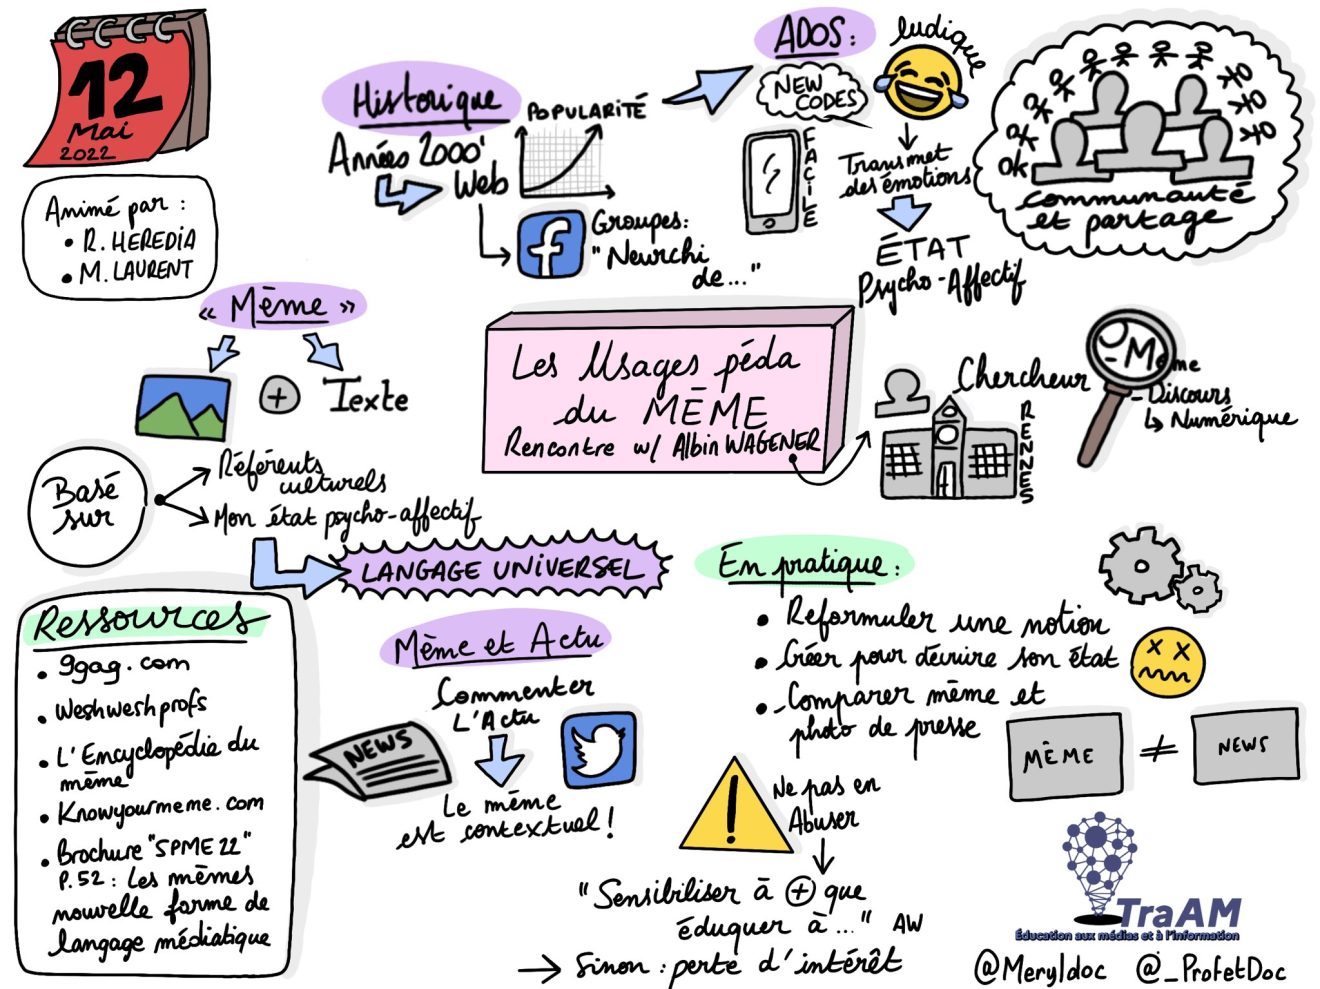 12
Mai
2022
Animé par :
• R. HEREDIA
• M. LAURENT
Historique
Années 2000'
Web
POPULARITÉ
Groupes:
"Neurchi
de..."
ADOS :
NEW
CODES
ludique
FACILE
Transmet
des émotions
ÉTAT
Psycho-Affectif
ok
communauté
et partage
« Mème »
+ Texte
Basé
sur
Référents
culturels
Mon état psycho-affectif
LANGAGE UNIVERSEL
Les Usages péda
du MÈME
Rencontre w/ Albin WAGENER
Chercheur
RENNES
- Mème
- Discours
↳ Numérique
Ressources
• 9gag.com
• Weshweshprofs
• L'Encyclopédie du
mème
• Knowyourmeme.com
• Brochure "SPME 22"
P.52 : Les mèmes
nouvelle forme de
langage médiatique
Mème et Actu
Commenter
L'Actu
NEWS
Le mème
est contextuel !
En pratique :
• Reformuler une notion
• Créer pour décrire son état
• Comparer mème et
photo de presse
MÈME ≠ NEWS
!
Ne pas en
Abuser
"Sensibiliser à + que
éduquer à..." AW
→ Sinon : perte d'intérêt
TraAM
Éducation aux médias et à l'Information
@Meryldoc @_ProfetDoc